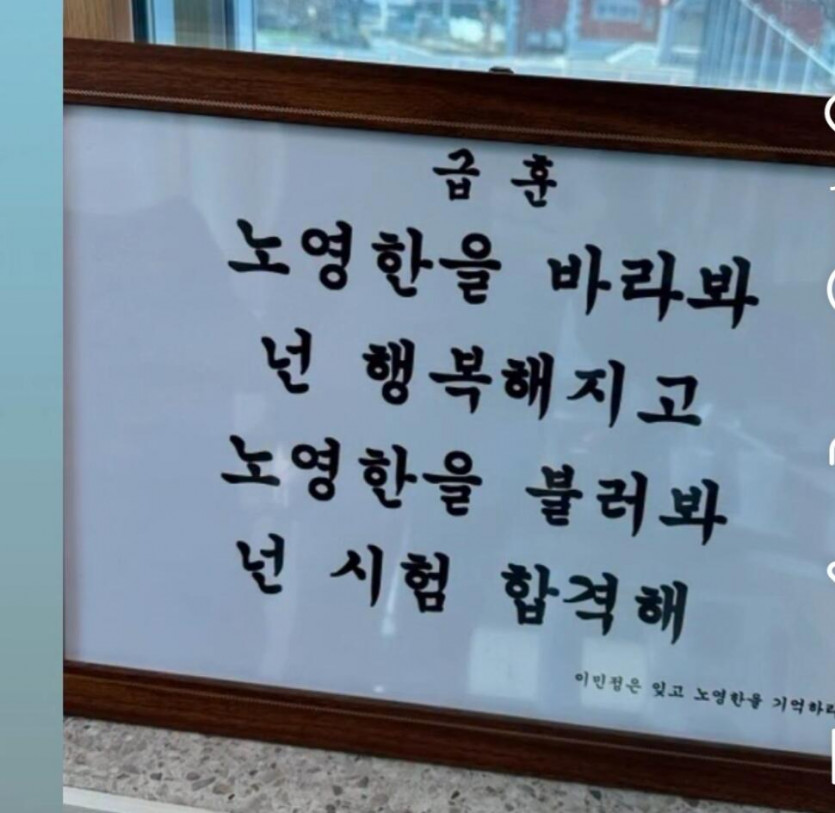 급 훈
노영한을 바라봐
넌 행복해지고
노영한을 불러봐
넌 시험 합격해
이민정은 잊고 노영한을 기억하라